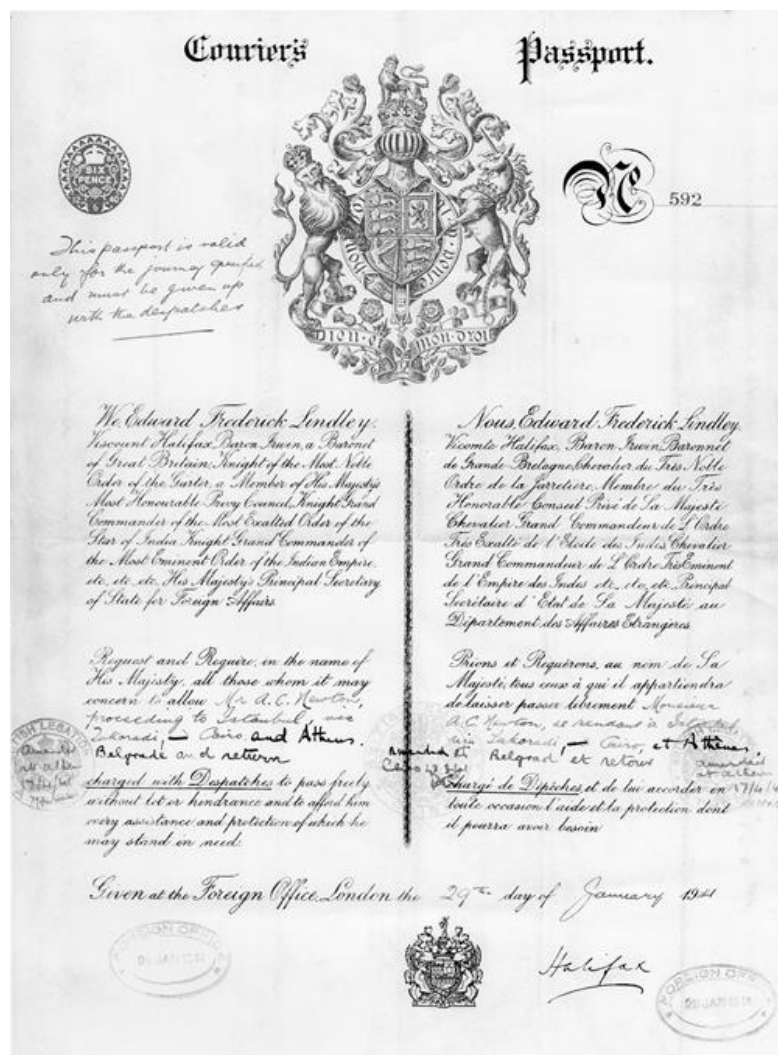 Courier's Passport.
SIX
PENCE
No 592
This passport is valid
only for the journey specified
and must be given up
with the despatches
DIEU ET MON DROIT
We, Edward Frederick Lindley,
Viscount Halifax, Baron Irwin, a Baronet
of Great Britain, Knight of the Most Noble
Order of the Garter, a Member of His Majesty's
Most Honourable Privy Council, Knight Grand
Commander of the Most Exalted Order of the
Star of India, Knight Grand Commander of
the Most Eminent Order of the Indian Empire,
etc, etc, etc, His Majesty's Principal Secretary
of State for Foreign Affairs
Request and Require, in the name of
His Majesty, all those whom it may
concern to allow Mr A. C. Newton,
proceeding to Istanbul, via
Takoradi, — Cairo and Athens.
Belgrade and return
charged with Despatches to pass freely
without let or hindrance and to afford him
every assistance and protection of which he
may stand in need.
BRITISH LEGATION
amended
at Athens
17/4/41
Amended at
Cairo
Nous, Edward Frederick Lindley,
Vicomte Halifax, Baron Irwin, Baronnet
de Grande Bretagne, Chevalier du Très Noble
Ordre de la Jarretière, Membre du Très
Honorable Conseil Privé de Sa Majesté
Chevalier Grand Commandeur de L'Ordre
Très Exalté de l'Etoile des Indes, Chevalier
Grand Commandeur de L'Ordre Très Eminent
de l'Empire des Indes etc, etc, etc, Principal
Secrétaire d'Etat de Sa Majesté au
Département des Affaires Etrangères
Prions et Requérons, au nom de Sa
Majesté, tous ceux à qui il appartiendra
de laisser passer librement Monsieur
A. C. Newton, se rendant à Istanbul,
via Takoradi, — Cairo, et Athènes,
Belgrad et retour
Chargé de Dépêches, et de lui accorder en
toute occasion l'aide et la protection dont
il pourra avoir besoin
amended
at Athens
17/4/4
Given at the Foreign Office, London the 29th day of January 1941
Halifax
FOREIGN OFFICE
29 JAN 1941
FOREIGN OFF
29 JAN 1941